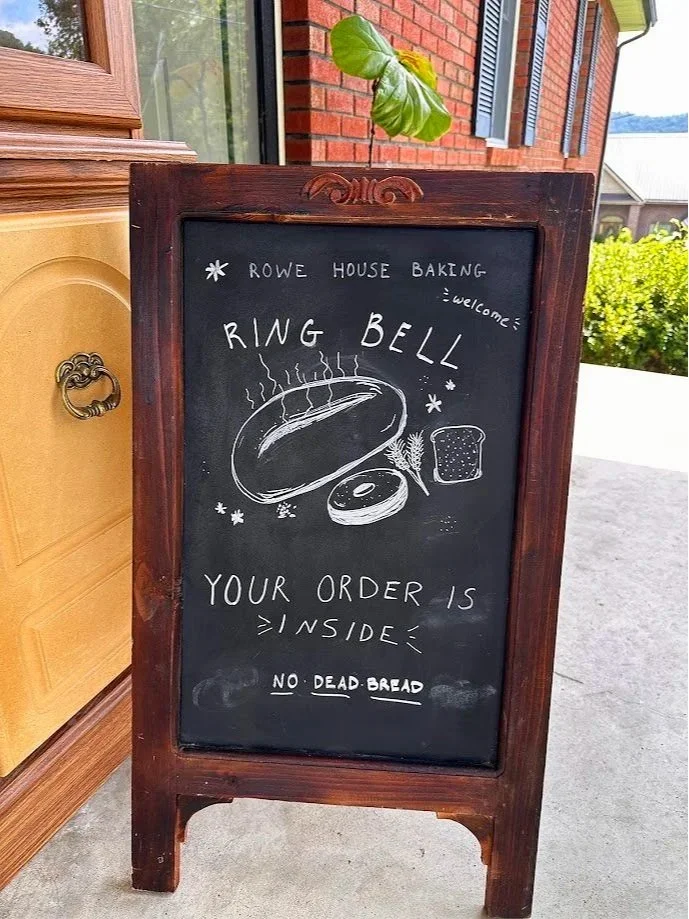 ROWE HOUSE BAKING
welcome
RING BELL
YOUR ORDER IS
INSIDE
NO · DEAD · BREAD